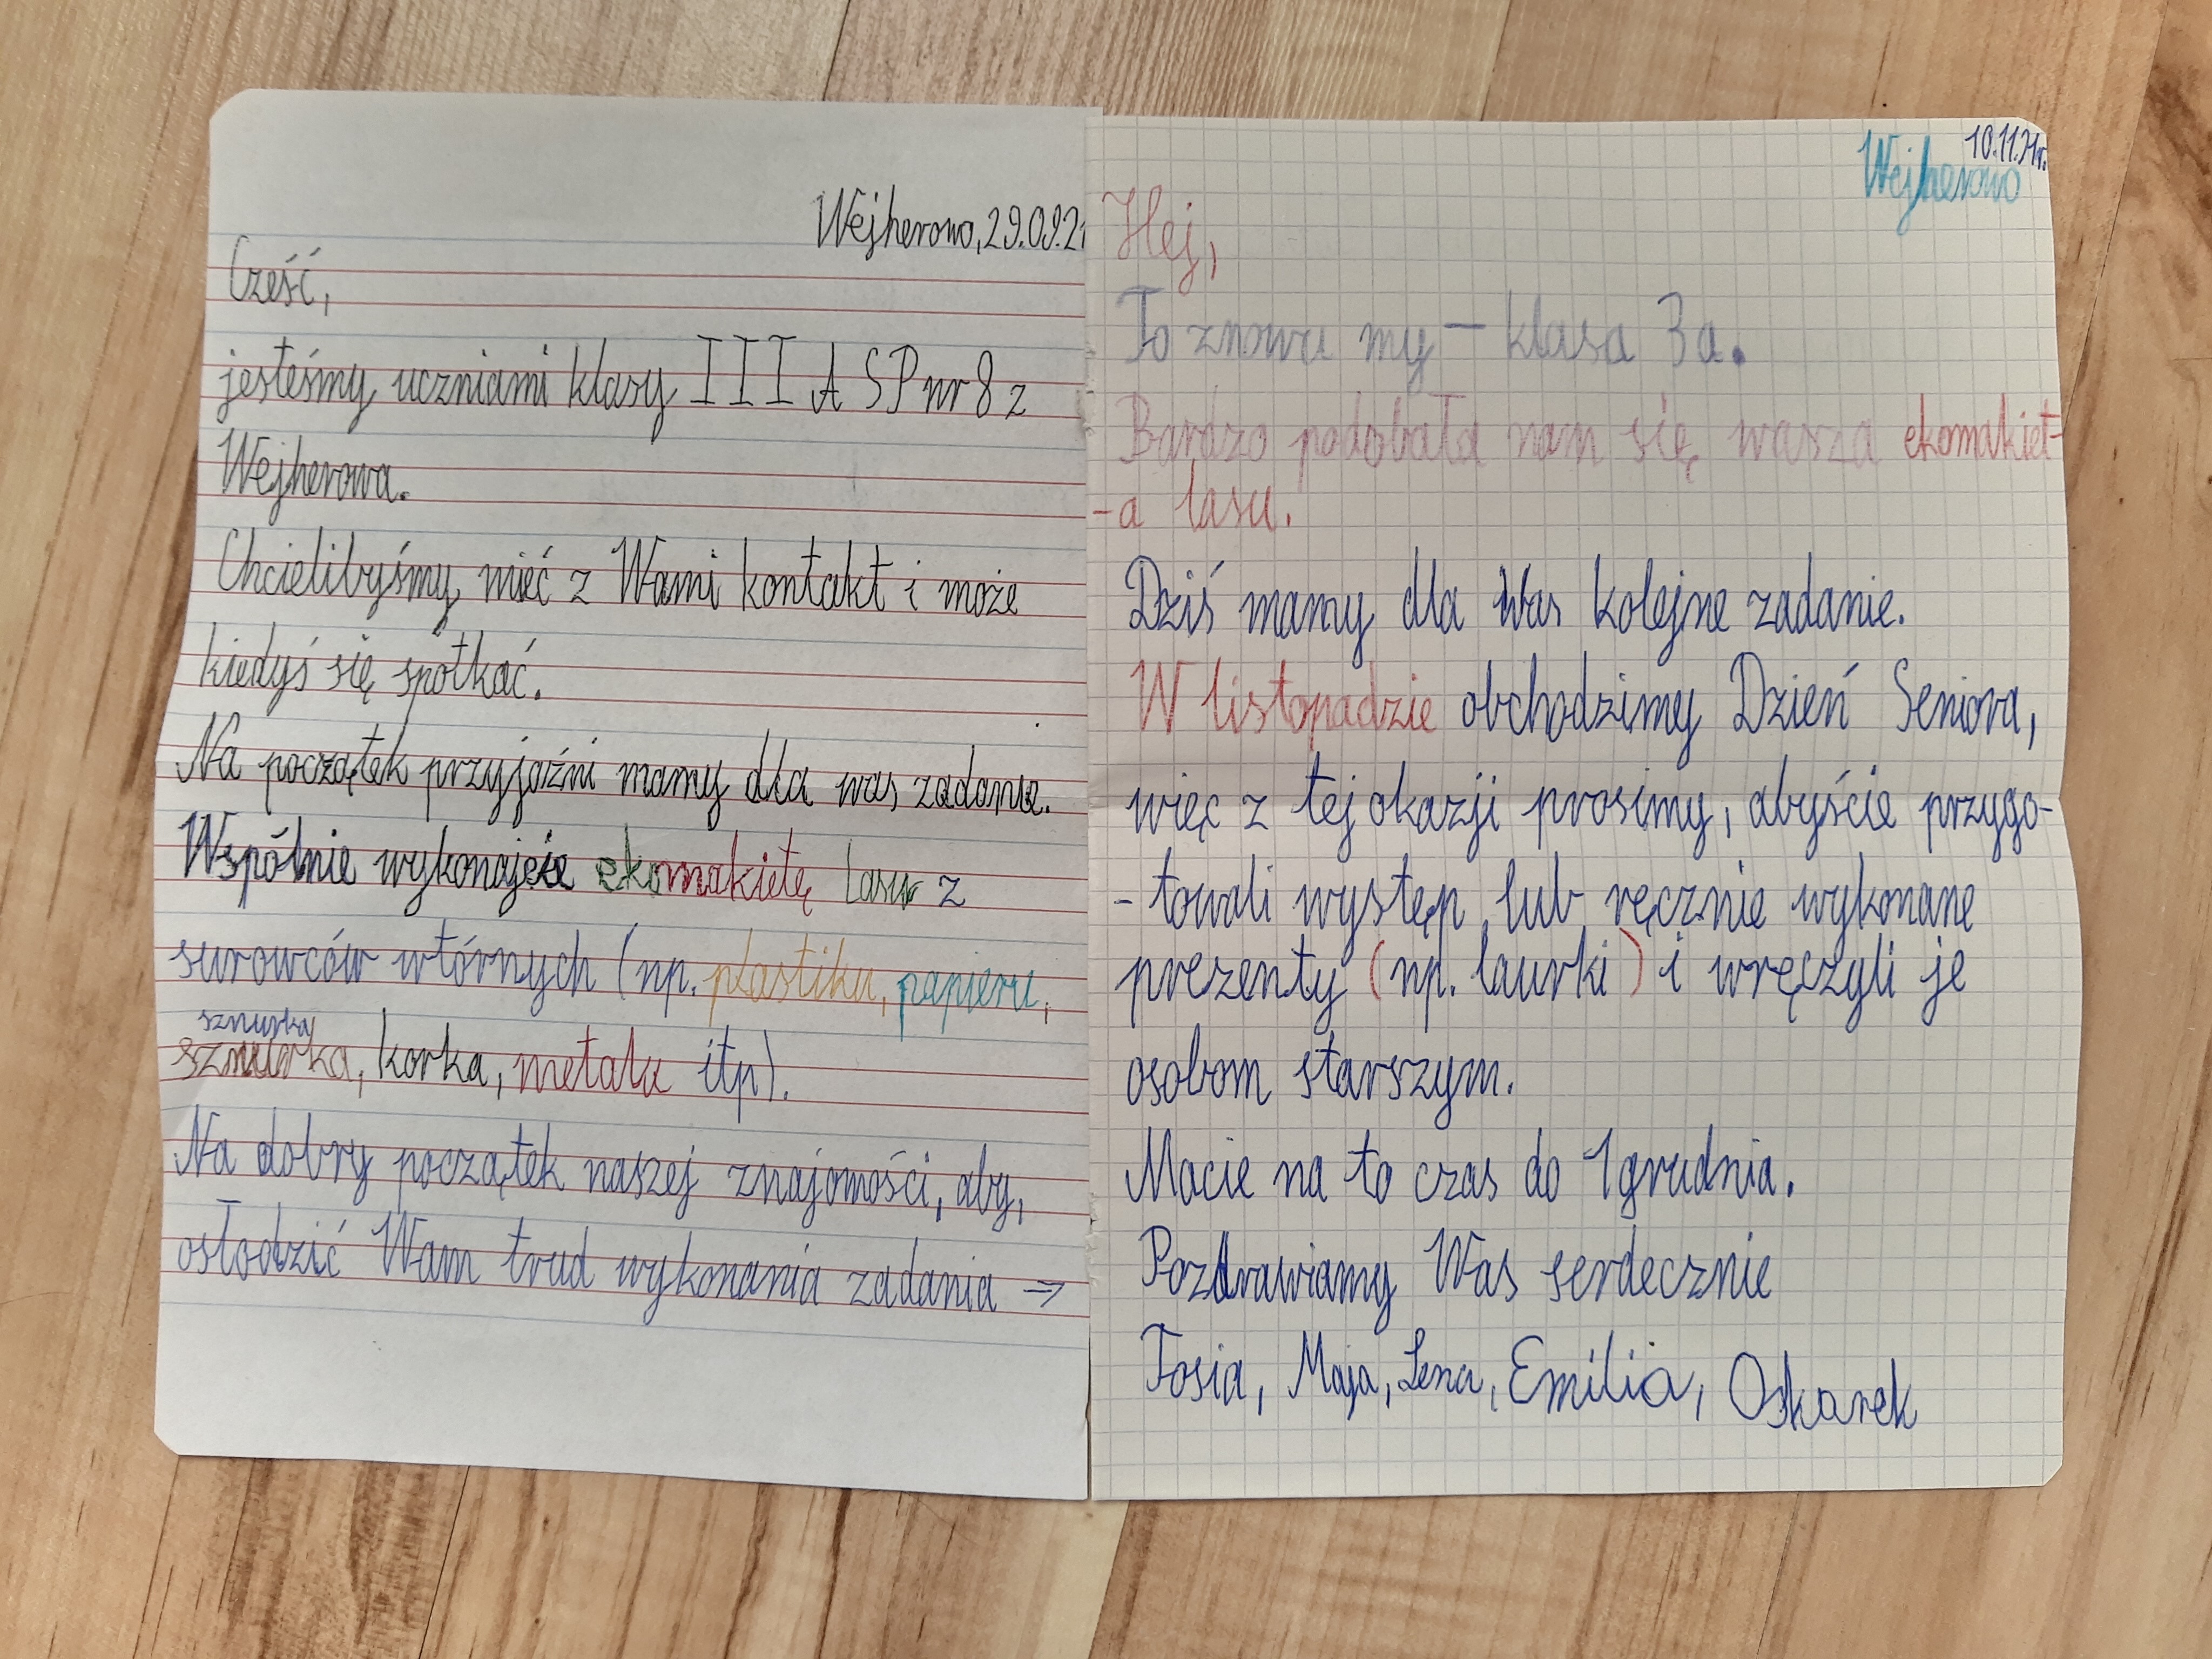 Wejherowo, 29.09.21
Cześć,
jesteśmy uczniami klasy III A SP nr 8 z
Wejherowa.
Chcielibyśmy mieć z Wami kontakt i może
kiedyś się spotkać.
Na początek przyjaźni mamy dla was zadanie.
Wspólnie wykonajcie ekomakietę lasu z
surowców wtórnych (np. plastiku, papieru,
sznurka
sznurka, korka, metalu itp).
Na dobry początek naszej znajomości, aby,
osłodzić Wam trud wykonania zadania ⇒
10.11.21r.
Wejherowo
Hej,
To znowu my – klasa 3a.
Bardzo podobała nam się wasza ekomakiet-
-a lasu.
Dziś mamy dla Was kolejne zadanie.
W listopadzie obchodzimy Dzień Seniora,
więc z tej okazji prosimy, abyście przygo-
-towali występ lub ręcznie wykonane
prezenty (np. laurki) i wręczyli je
osobom starszym.
Macie na to czas do 1 grudnia.
Pozdrawiamy Was serdecznie
Tosia, Maja, Lena, Emilia, Oskarek